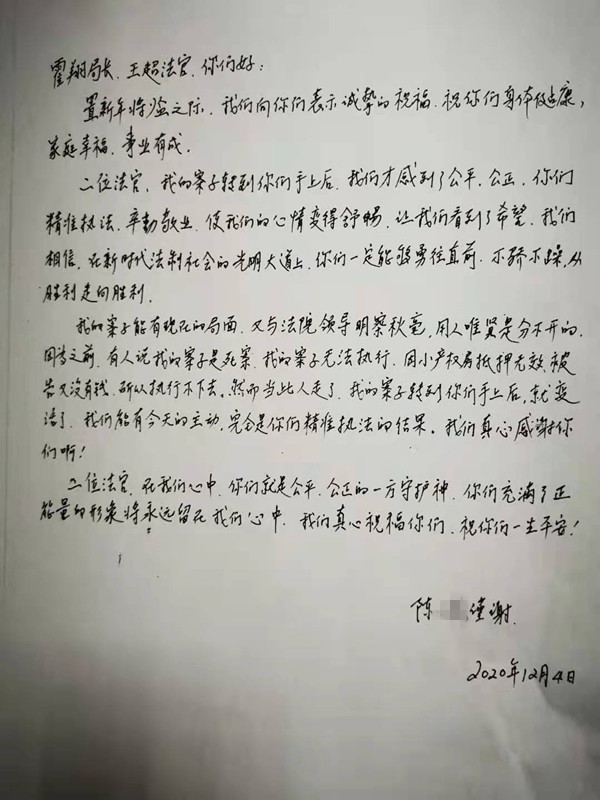 霍翔局长、王超法官，你们好：
置新年将临之际，我们向你们表示诚挚的祝福，祝你们身体健康，
家庭幸福，事业有成。
二位法官，我的案子转到你们手上后，我们才感到了公平、公正，你们
精准执法、辛勤敬业，使我们的心情变得舒畅，让我们看到了希望，我们
相信，在新时代法制社会的光明大道上，你们一定能够勇往直前，不骄不躁，从
胜利走向胜利。
我的案子能有现在的局面，又与法院领导明察秋毫，用人唯贤是分不开的，
因为之前，有人说我的案子是死案，我的案子无法执行，用小产权房抵押无效，被
告又没有钱，所以执行不下去。然而当此人走了，我的案子转到你们手上后，就变
活了，我们能有今天的主动，完全是你们精准执法的结果。我们真心感谢你
们啊！
二位法官，在我们心中，你们就是公平、公正的一方守护神，你们充满了正
能量的形象将永远留在我们心中，我们真心祝福你们，祝你们一生平安！
陈 谢
2020年12月4日